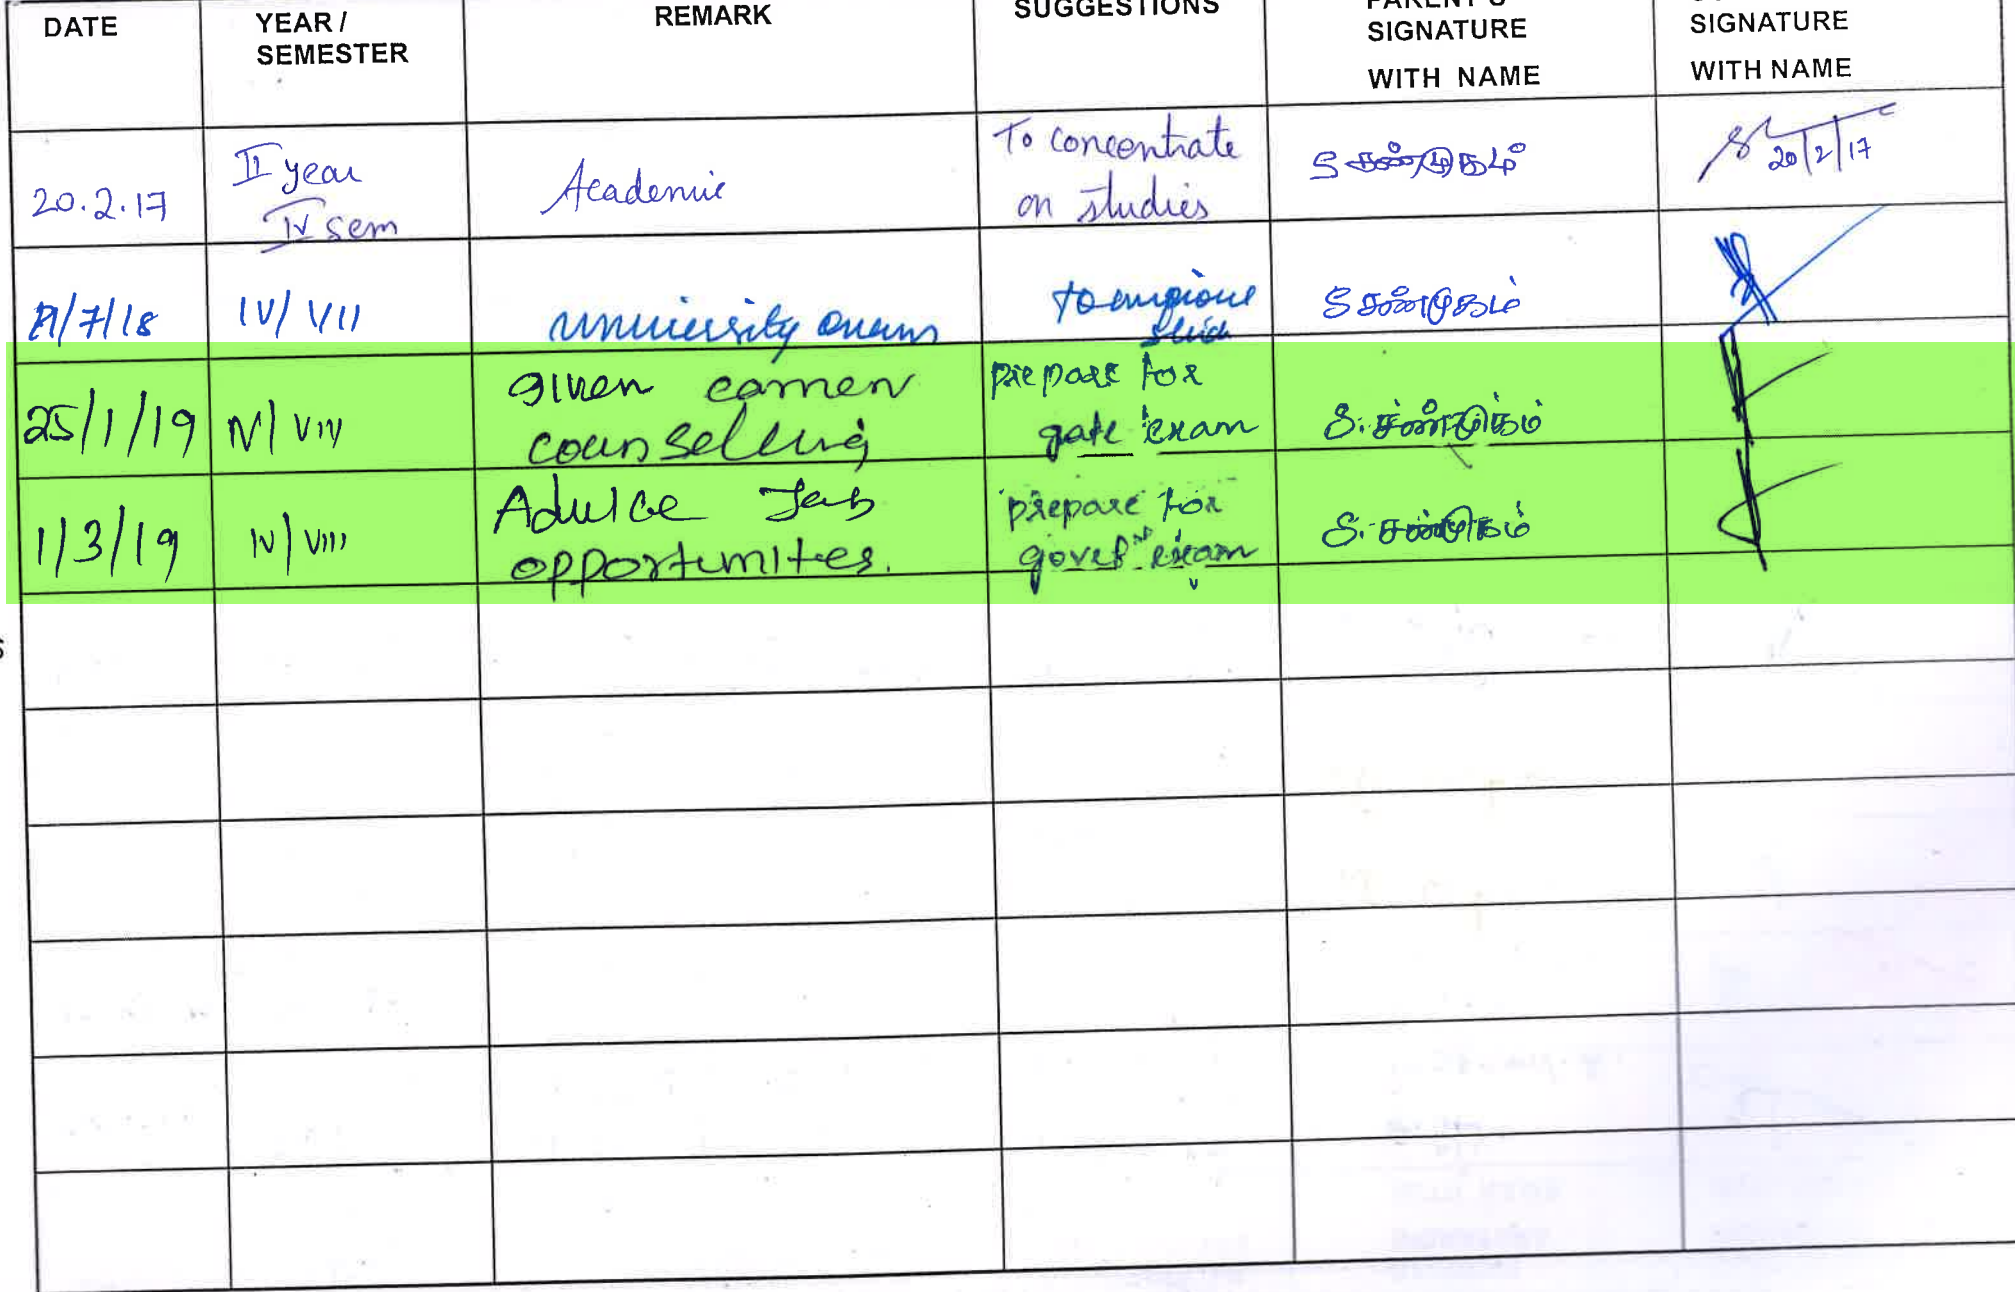 DATE
YEAR /
SEMESTER
REMARK
SUGGESTIONS
PARENT'S
SIGNATURE
WITH NAME
SIGNATURE
WITH NAME
20.2.17
II year
IV sem
Academic
To concentrate
on studies
S சண்முகம்
20/2/17
/7/18
IV/ VII
university exams
to
S சண்முகம்
25/1/19
IV/ VIII
given
counseling
prepare for
gate exam
S. சண்முகம்
1/3/19
IV/ VIII
Advice Job
opportunities.
prepare for
exam
S. சண்முகம்